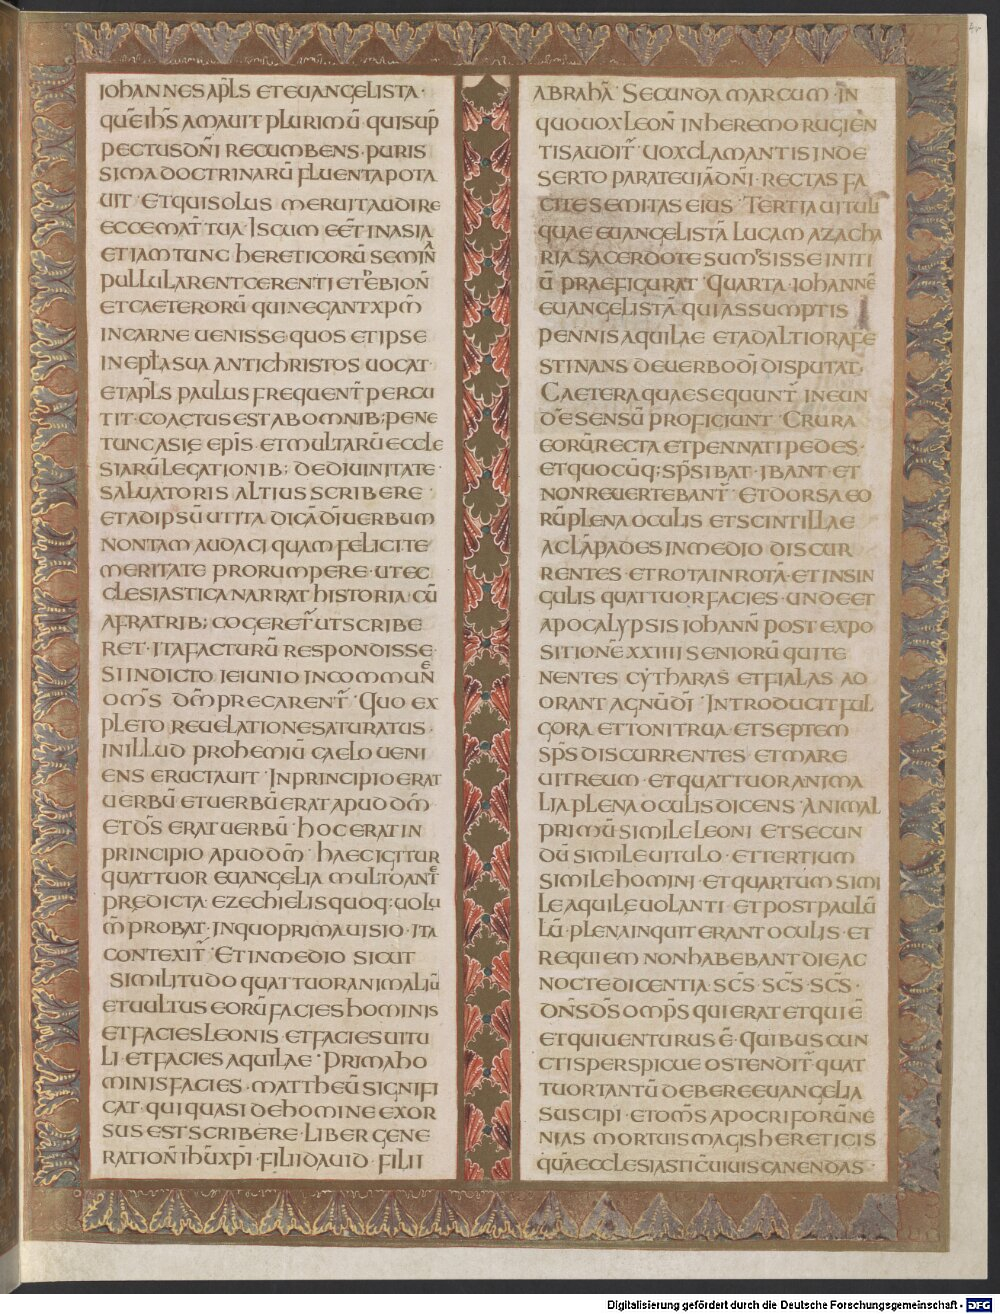 IOHANNES AP̅LS ET EUANGELISTA·
QUE̅ IH̅S AMAUIT PLURIMU̅· QUI SUP̅
PECTUS DN̅I RECUMBENS· PURIS
SIMA DOCTRINARU̅ FLUENTA POTA
UIT· ET QUI SOLUS MERUIT AUDIRE
ECCE MAT̅ TUA· IS CUM EE̅T IN ASIA
ET IAM TUNC HERETICORU̅ SEMINA
PULLULARENT CERENTI ET EBION̅
ET CAETERORU̅ QUI NEGANT XP̅M
IN CARNE UENISSE QUOS ET IPSE
IN EPL̅A SUA ANTICHRISTOS UOCAT·
ET AP̅LS PAULUS FREQUENT̅ PERCU
TIT· COACTUS EST AB OMNIB; PENE
TUNC ASIĘ EPI̅S· ET MULTARU̅ ECCLE
SIARU̅ LEGATIONIB; DE DIUINITATE·
SALUATORIS ALTIUS SCRIBERE·
ET AD IPSU̅ UT ITA DICA̅ DI̅ UERBUM
NON TAM AUDACI QUAM FELICI TE
MERITATE PRORUMPERE· UT EC
CLESIASTICA NARRAT HISTORIA· CU̅
A FRATRIB; COGERET̅ UT SCRIBE
RET· ITA FACTURU̅ RESPONDISSE·
SI INDICTO IEIUNIO IN COMMUNE
OM̅S DM̅ PRECARENT̅· QUO EX
PLETO REUELATIONE SATURATUS·
IN ILLUD PROHEMIU̅ CAELO UENI
ENS ERUCTAUIT· IN PRINCIPIO ERAT
UERBU̅ ET UERBU̅ ERAT APUD DM̅·
ET DS̅ ERAT UERBU̅· HOC ERAT IN
PRINCIPIO APUD DM̅· HAEC IGITUR
QUATTUOR EUANGELIA MULTO ANTE
PRĘDICTA· EZECHIELIS QUOQ: UOLU
M̅ PROBAT· IN QUO PRIMA UISIO· ITA
CONTEXIT̅· ET IN MEDIO SICUT
SIMILITUDO QUATTUOR ANIMALIU̅
ET UULTUS EORU̅ FACIES HOMINIS
ET FACIES LEONIS· ET FACIES UITU
LI· ET FACIES AQUILAE· PRIMA HO
MINIS FACIES· MATTHEU̅ SIGNIFI
CAT· QUI QUASI DE HOMINE EXOR
SUS EST SCRIBERE· LIBER GENE
RATION̅ IHU̅ XPI̅· FILII DAUID· FILII
ABRAHA̅· SECUNDA MARCUM· IN
QUO UOX LEON̅ IN HEREMO RUGIEN
TIS AUDIT̅· UOX CLAMANTIS IN DE
SERTO PARATE UIA̅ DN̅I· RECTAS FA
CITE SEMITAS EIUS· TERTIA UITULI
QUAE EUANGELISTA̅ LUCAM A ZACHA
RIA SACERDOTE SUMPSISSE INITI
U̅ PRAEFIGURAT· QUARTA IOHANNE̅
EUANGELISTA̅ QUI ASSUMPTIS
PENNIS AQUILAE ET AD ALTIORA FE
STINANS DE UERBO DI̅ DISPUTAT·
CAETERA QUAE SEQUUNT̅ IN EUN
DE̅ SENSU̅ PROFICIUNT· CRURA
EORU̅ RECTA ET PENNATI PEDES·
ET QUOCU̅Q; SP̅S IBAT· IBANT ET
NON REUERTEBANT̅· ET DORSA EO
RU̅ PLENA OCULIS ET SCINTILLAE
AC LA̅PADES IN MEDIO DISCUR
RENTES· ET ROTA IN ROTA̅· ET IN SIN
GULIS QUATTUOR FACIES· UNDE ET
APOCALYPSIS IOHANN̅ POST EXPO
SITIONE̅ XXIIII SENIORU̅ QUI TE
NENTES CYTHARAS ET FIALAS AD
ORANT AGNU̅ DI̅· INTRODUCIT FUL
GORA ET TONITRUA· ET SEPTEM
SP̅S DISCURRENTES· ET MARE
UITREUM· ET QUATTUOR ANIMA
LIA PLENA OCULIS DICENS· ANIMAL
PRIMU̅ SIMILE LEONI· ET SECUN
DU̅ SIMILE UITULO· ET TERTIUM
SIMILE HOMINI· ET QUARTUM SIMI
LE AQUILĘ UOLANTI· ET POST PAULU̅
LU̅· PLENA INQUIT ERANT OCULIS· ET
REQUIEM NON HABEBANT DIE AC
NOCTE DICENTIA· SC̅S· SC̅S· SC̅S·
DN̅S DS̅ OMP̅S QUI ERAT ET QUI E̅
ET QUI UENTURUS E̅· QUIBUS CUN
CTIS PERSPICUE OSTENDIT̅ QUAT
TUOR TANTU̅ DEBERE EUANGELIA
SUSCIPI· ET OM̅S APOCRIFORU̅ NE
NIAS MORTUIS MAGIS HERETICIS
QUA̅ ECCLESIASTICIS UIUIS CANENDAS·
Digitalisierung gefördert durch die Deutsche Forschungsgemeinschaft - DFG